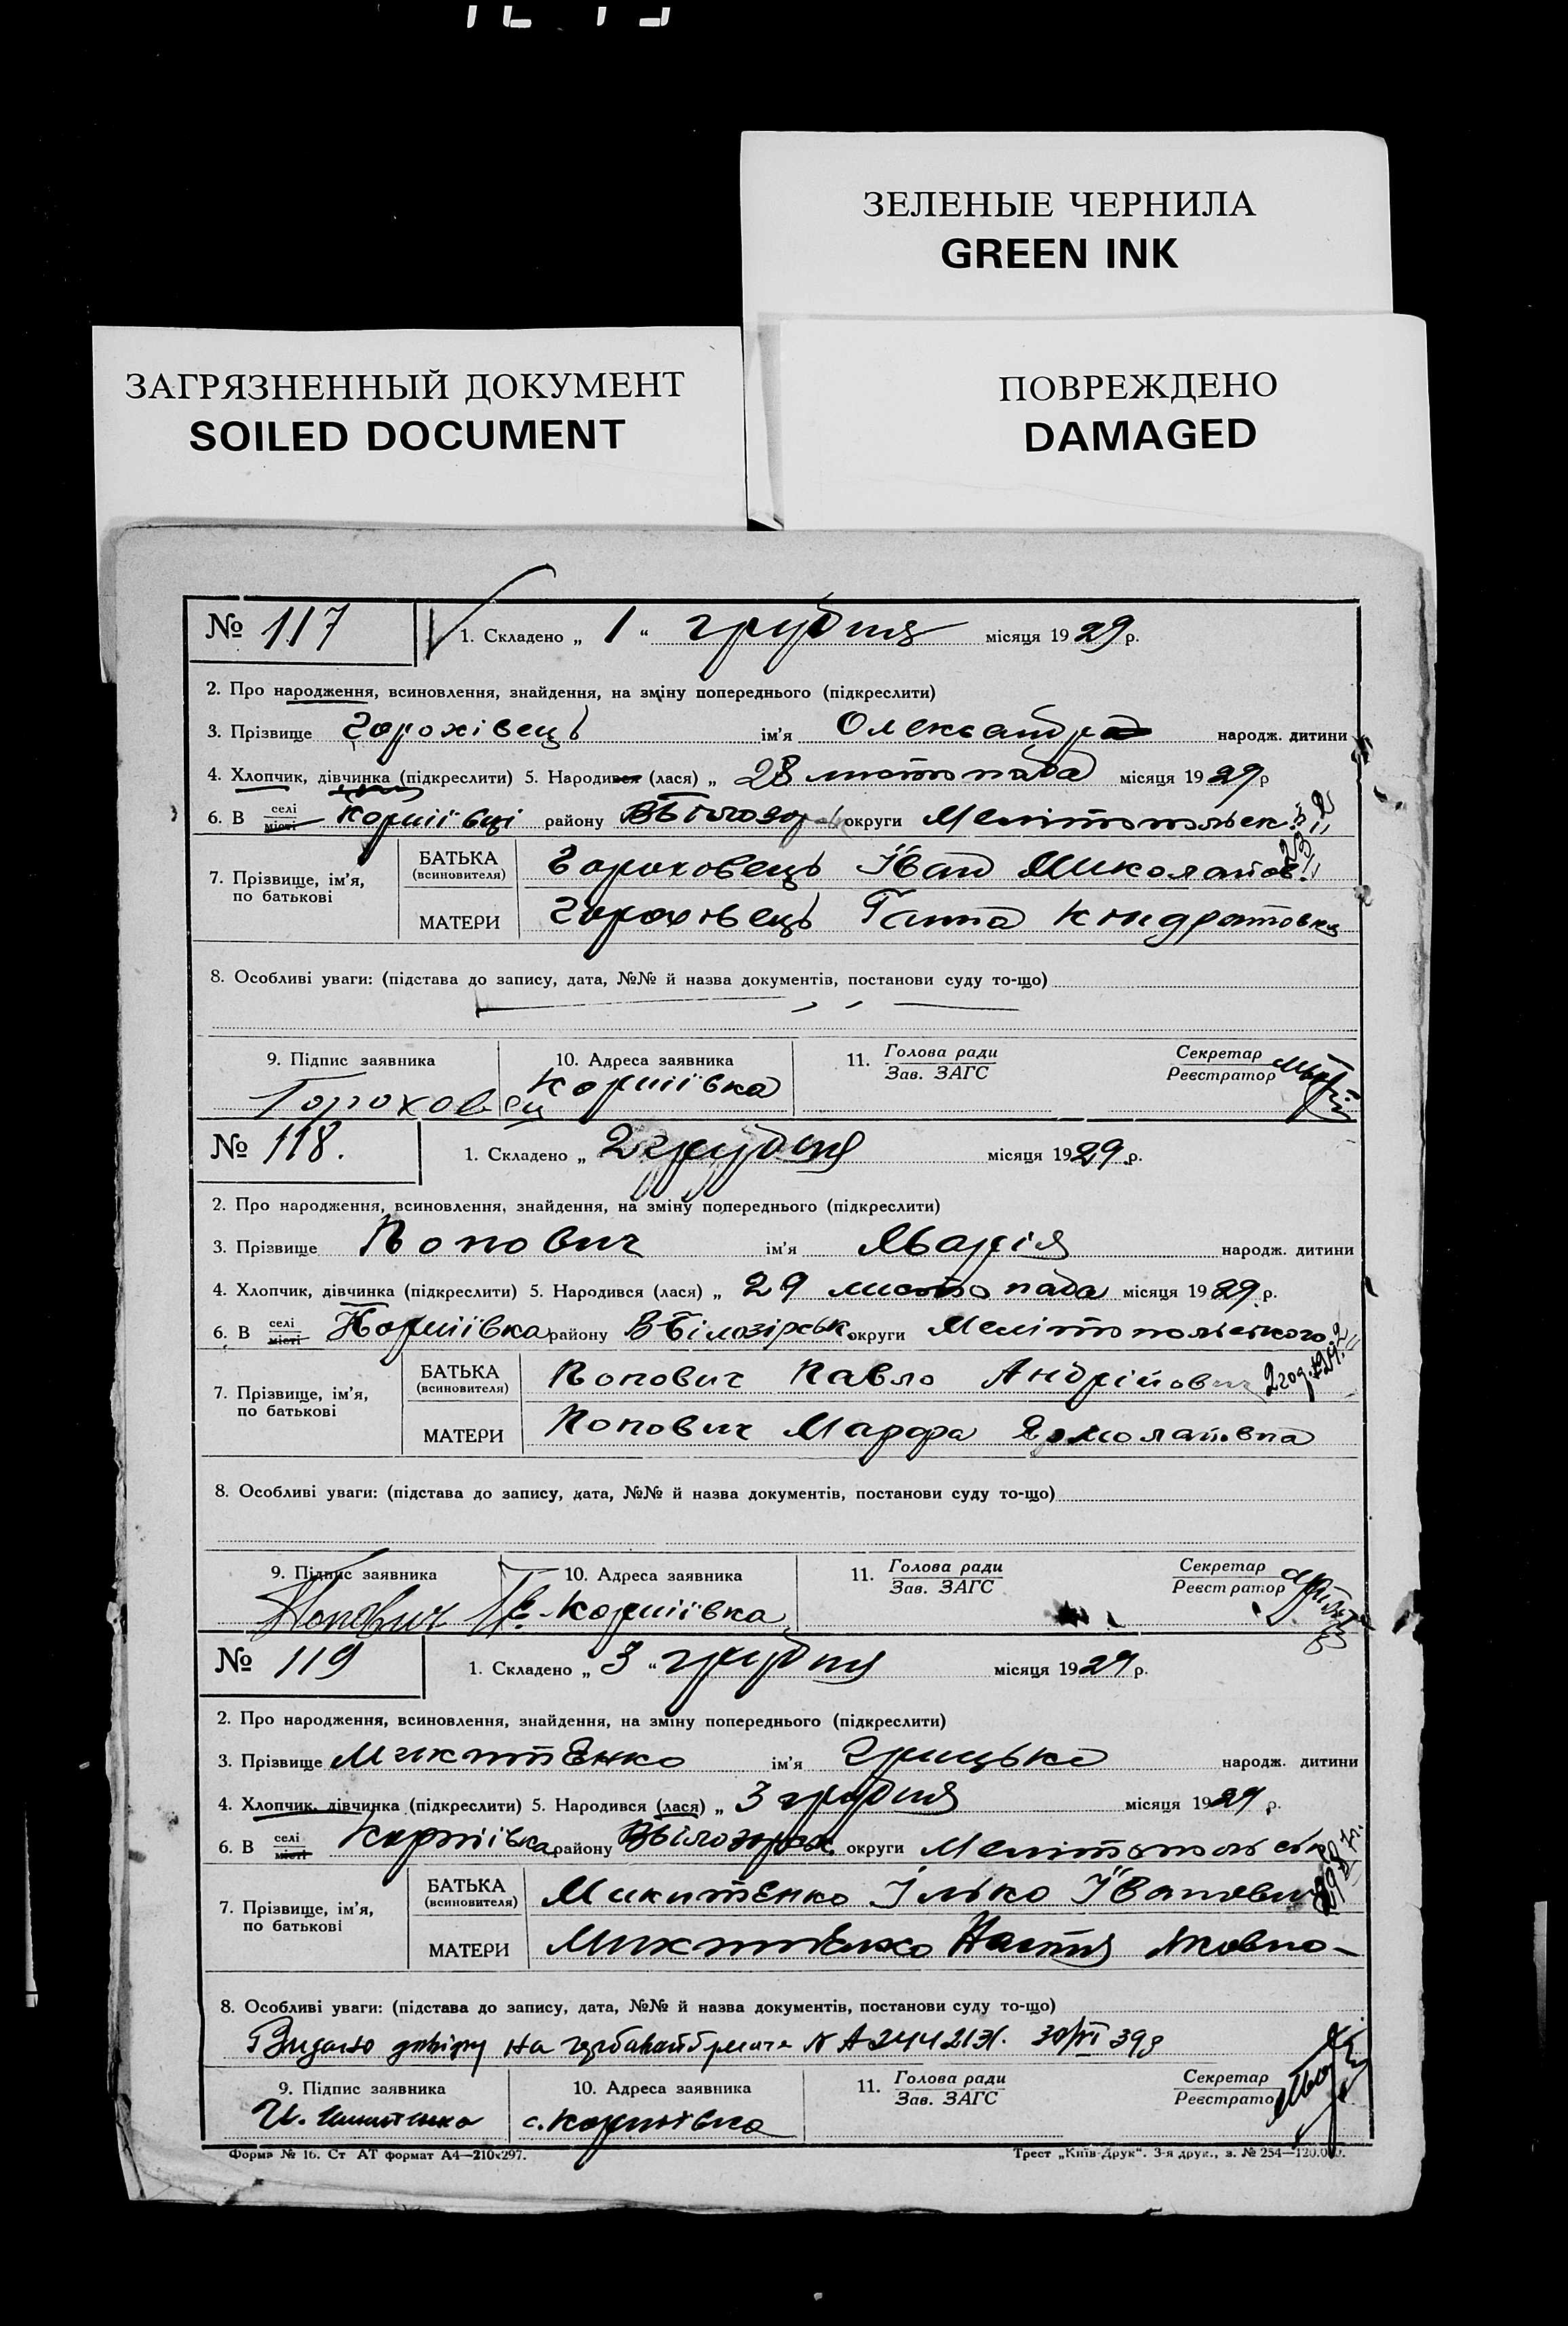 ЗЕЛЕНЫЕ ЧЕРНИЛА
GREEN INK
ЗАГРЯЗНЕННЫЙ ДОКУМЕНТ
SOILED DOCUMENT
ПОВРЕЖДЕНО
DAMAGED
№ 117 1. Складено „ 1 “ грудня місяця 1929 р.
2. Про народження, всиновлення, знайдення, на зміну попереднього (підкреслити)
3. Прізвище Горохівець ім'я Олександр народж. дитини
4. Хлопчик, дівчинка (підкреслити) 5. Народився (лася) „ 28 листопада місяця 1929 р
6. В селі місті Корніївці району ВБілозор округи Мелітопольск
7. Прізвище, ім'я, по батькові
БАТЬКА (всиновителя) Гороховець Іван Миколайов
МАТЕРИ Горохівець Ганна Кндратовна
8. Особливі уваги: (підстава до запису, дата, №№ й назва документів, постанови суду то-що)
9. Підпис заявника 10. Адреса заявника 11. Голова ради Зав. ЗАГС Секретар Реєстратор
Гороховец Корніївка
№ 118. 1. Складено „ 2 грудня місяця 1929 р.
2. Про народження, всиновлення, знайдення, на зміну попереднього (підкреслити)
3. Прізвище Попович ім'я Марія народж. дитини
4. Хлопчик, дівчинка (підкреслити) 5. Народився (лася) „ 29 листопада місяця 1929 р.
6. В селі місті Корніївка району ВБілозірськ округи Мелітопольского
7. Прізвище, ім'я, по батькові
БАТЬКА (всиновителя) Попович Павло Андрійович
МАТЕРИ Попович Марфа Ярмолаивна
8. Особливі уваги: (підстава до запису, дата, №№ й назва документів, постанови суду то-що)
9. Підпис заявника 10. Адреса заявника 11. Голова ради Зав. ЗАГС Секретар Реєстратор
Попович Корніївка
№ 119 1. Складено „ 3 “ грудня місяця 1929 р.
2. Про народження, всиновлення, знайдення, на зміну попереднього (підкреслити)
3. Прізвище Микитенко ім'я Грицько народж. дитини
4. Хлопчик, дівчинка (підкреслити) 5. Народився (лася) „ 3 грудня місяця 1929 р.
6. В селі місті Корніївка району ВБілозорськ. округи Мелітопольськ
7. Прізвище, ім'я, по батькові
БАТЬКА (всиновителя) Микитенко Ілько Іванович
МАТЕРИ Микитенко Настя Яковно
8. Особливі уваги: (підстава до запису, дата, №№ й назва документів, постанови суду то-що)
на N А 30/VI 39
9. Підпис заявника 10. Адреса заявника 11. Голова ради Зав. ЗАГС Секретар Реєстратор
с. Корніївка
Форма № 16. Ст АТ формат А4—210х297. Трест „Київ-Друк“. 3-я друк., з. № 254—120.000.